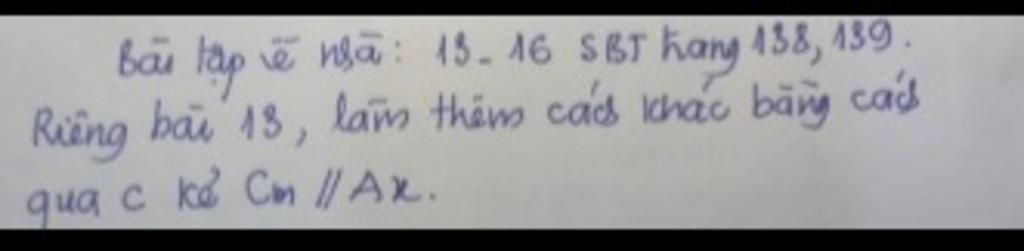 Bài tập về nhà: 13 - 16 SBT trang 138, 139.
Riêng bài 13, làm thêm cách khác bằng cách
qua C kẻ Cm // Ax.